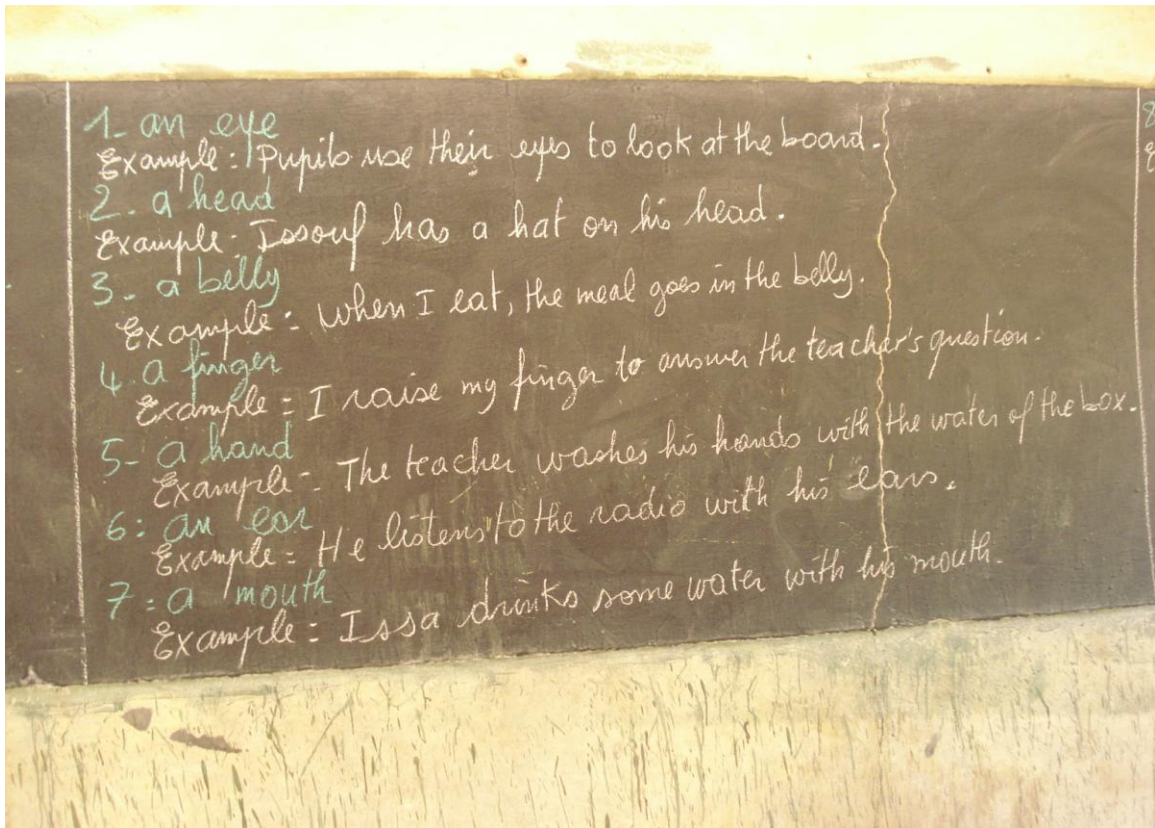 1- an eye
Example: Pupils use their eyes to look at the board.
2- a head
Example: Issouf has a hat on his head.
3- a belly
Example: when I eat, the meal goes in the belly.
4- a finger
Example: I raise my finger to answer the teacher's question.
5- a hand
Example: The teacher washes his hands with the water of the box.
6: an ear
Example: He listens to the radio with his ears.
7: a mouth
Example: Issa drinks some water with his mouth.
8